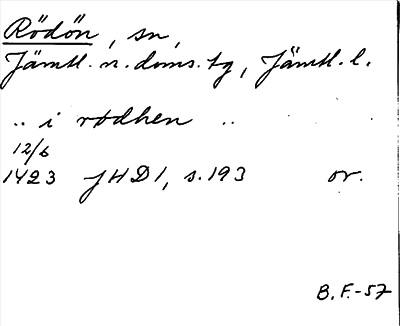 Rödön, sn,
Jämtl. n. doms. tg, Jämtl. l.
.. i rødhen ..
12/6
1423 JHD 1, s. 193 or.
B. F. -57